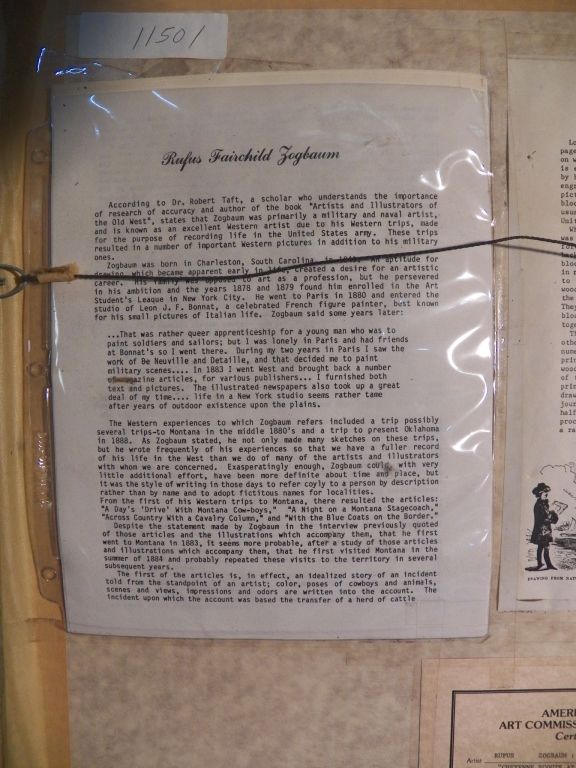 11501
Rufus Fairchild Zogbaum
According to Dr. Robert Taft, a scholar who understands the importance
of research of accuracy and author of the book "Artists and Illustrators of
the Old West", states that Zogbaum was primarily a military and naval artist,
and is known as an excellent Western artist due to his Western trips, made
for the purpose of recording life in the United States army. These trips
resulted in a number of important Western pictures in addition to his military
ones.
Zogbaum was born in Charleston, South Carolina, in aptitude for
drawing, which became apparent early in life, created a desire for an artistic
career. His family was opposed to art as a profession, but he persevered
in his ambition and the years 1878 and 1879 found him enrolled in the Art
Student's League in New York City. He went to Paris in 1880 and entered the
studio of Leon J. F. Bonnat, a celebrated French figure painter, best known
for his small pictures of Italian life. Zogbaum said some years later:
...That was rather queer apprenticeship for a young man who was to
paint soldiers and sailors; but I was lonely in Paris and had friends
at Bonnat's so I went there. During my two years in Paris I saw the
work of De Neuville and Detaille, and that decided me to paint
military scenes.... In 1883 I went West and brought back a number
of magazine articles, for various publishers... I furnished both
text and pictures. The illustrated newspapers also took up a great
deal of my time.... life in a New York studio seems rather tame
after years of outdoor existence upon the plains.
The Western experiences to which Zogbaum refers included a trip possibly
several trips-to Montana in the middle 1880's and a trip to present Oklahoma
in 1888. As Zogbaum stated, he not only made many sketches on these trips,
but he wrote frequently of his experiences so that we have a fuller record
of his life in the West than we do of many of the artists and illustrators
with whom we are concerned. Exasperatingly enough, Zogbaum could, with very
little additional effort, have been more definite about time and place, but
it was the style of writing in those days to refer coyly to a person by description
rather than by name and to adopt fictitous names for localities.
From the first of his Western trips to Montana, there resulted the articles:
"A Day's 'Drive' With Montana Cow-boys," "A Night on a Montana Stagecoach,"
"Across Country With a Cavalry Column," and "With the Blue Coats on the Border."
Despite the statement made by Zogbaum in the interview previously quoted
of those articles and the illustrations which accompany them, that he first
went to Montana in 1883, it seems more probable, after a study of those articles
and illustrations which accompany them, that he first visited Montana in the
summer of 1884 and probably repeated these visits to the territory in several
subsequent years.
The first of the articles is, in effect, an idealized story of an incident
told from the standpoint of an artist; color, poses of cowboys and animals,
scenes and views, impressions and odors are written into the account. The
incident upon which the account was based the transfer of a herd of cattle
DRAWING FROM NAT
AMERI
ART COMMISS
Cert
Artist RUFUS ZOGBAUM
"CHEYENNE SCOUTS AT